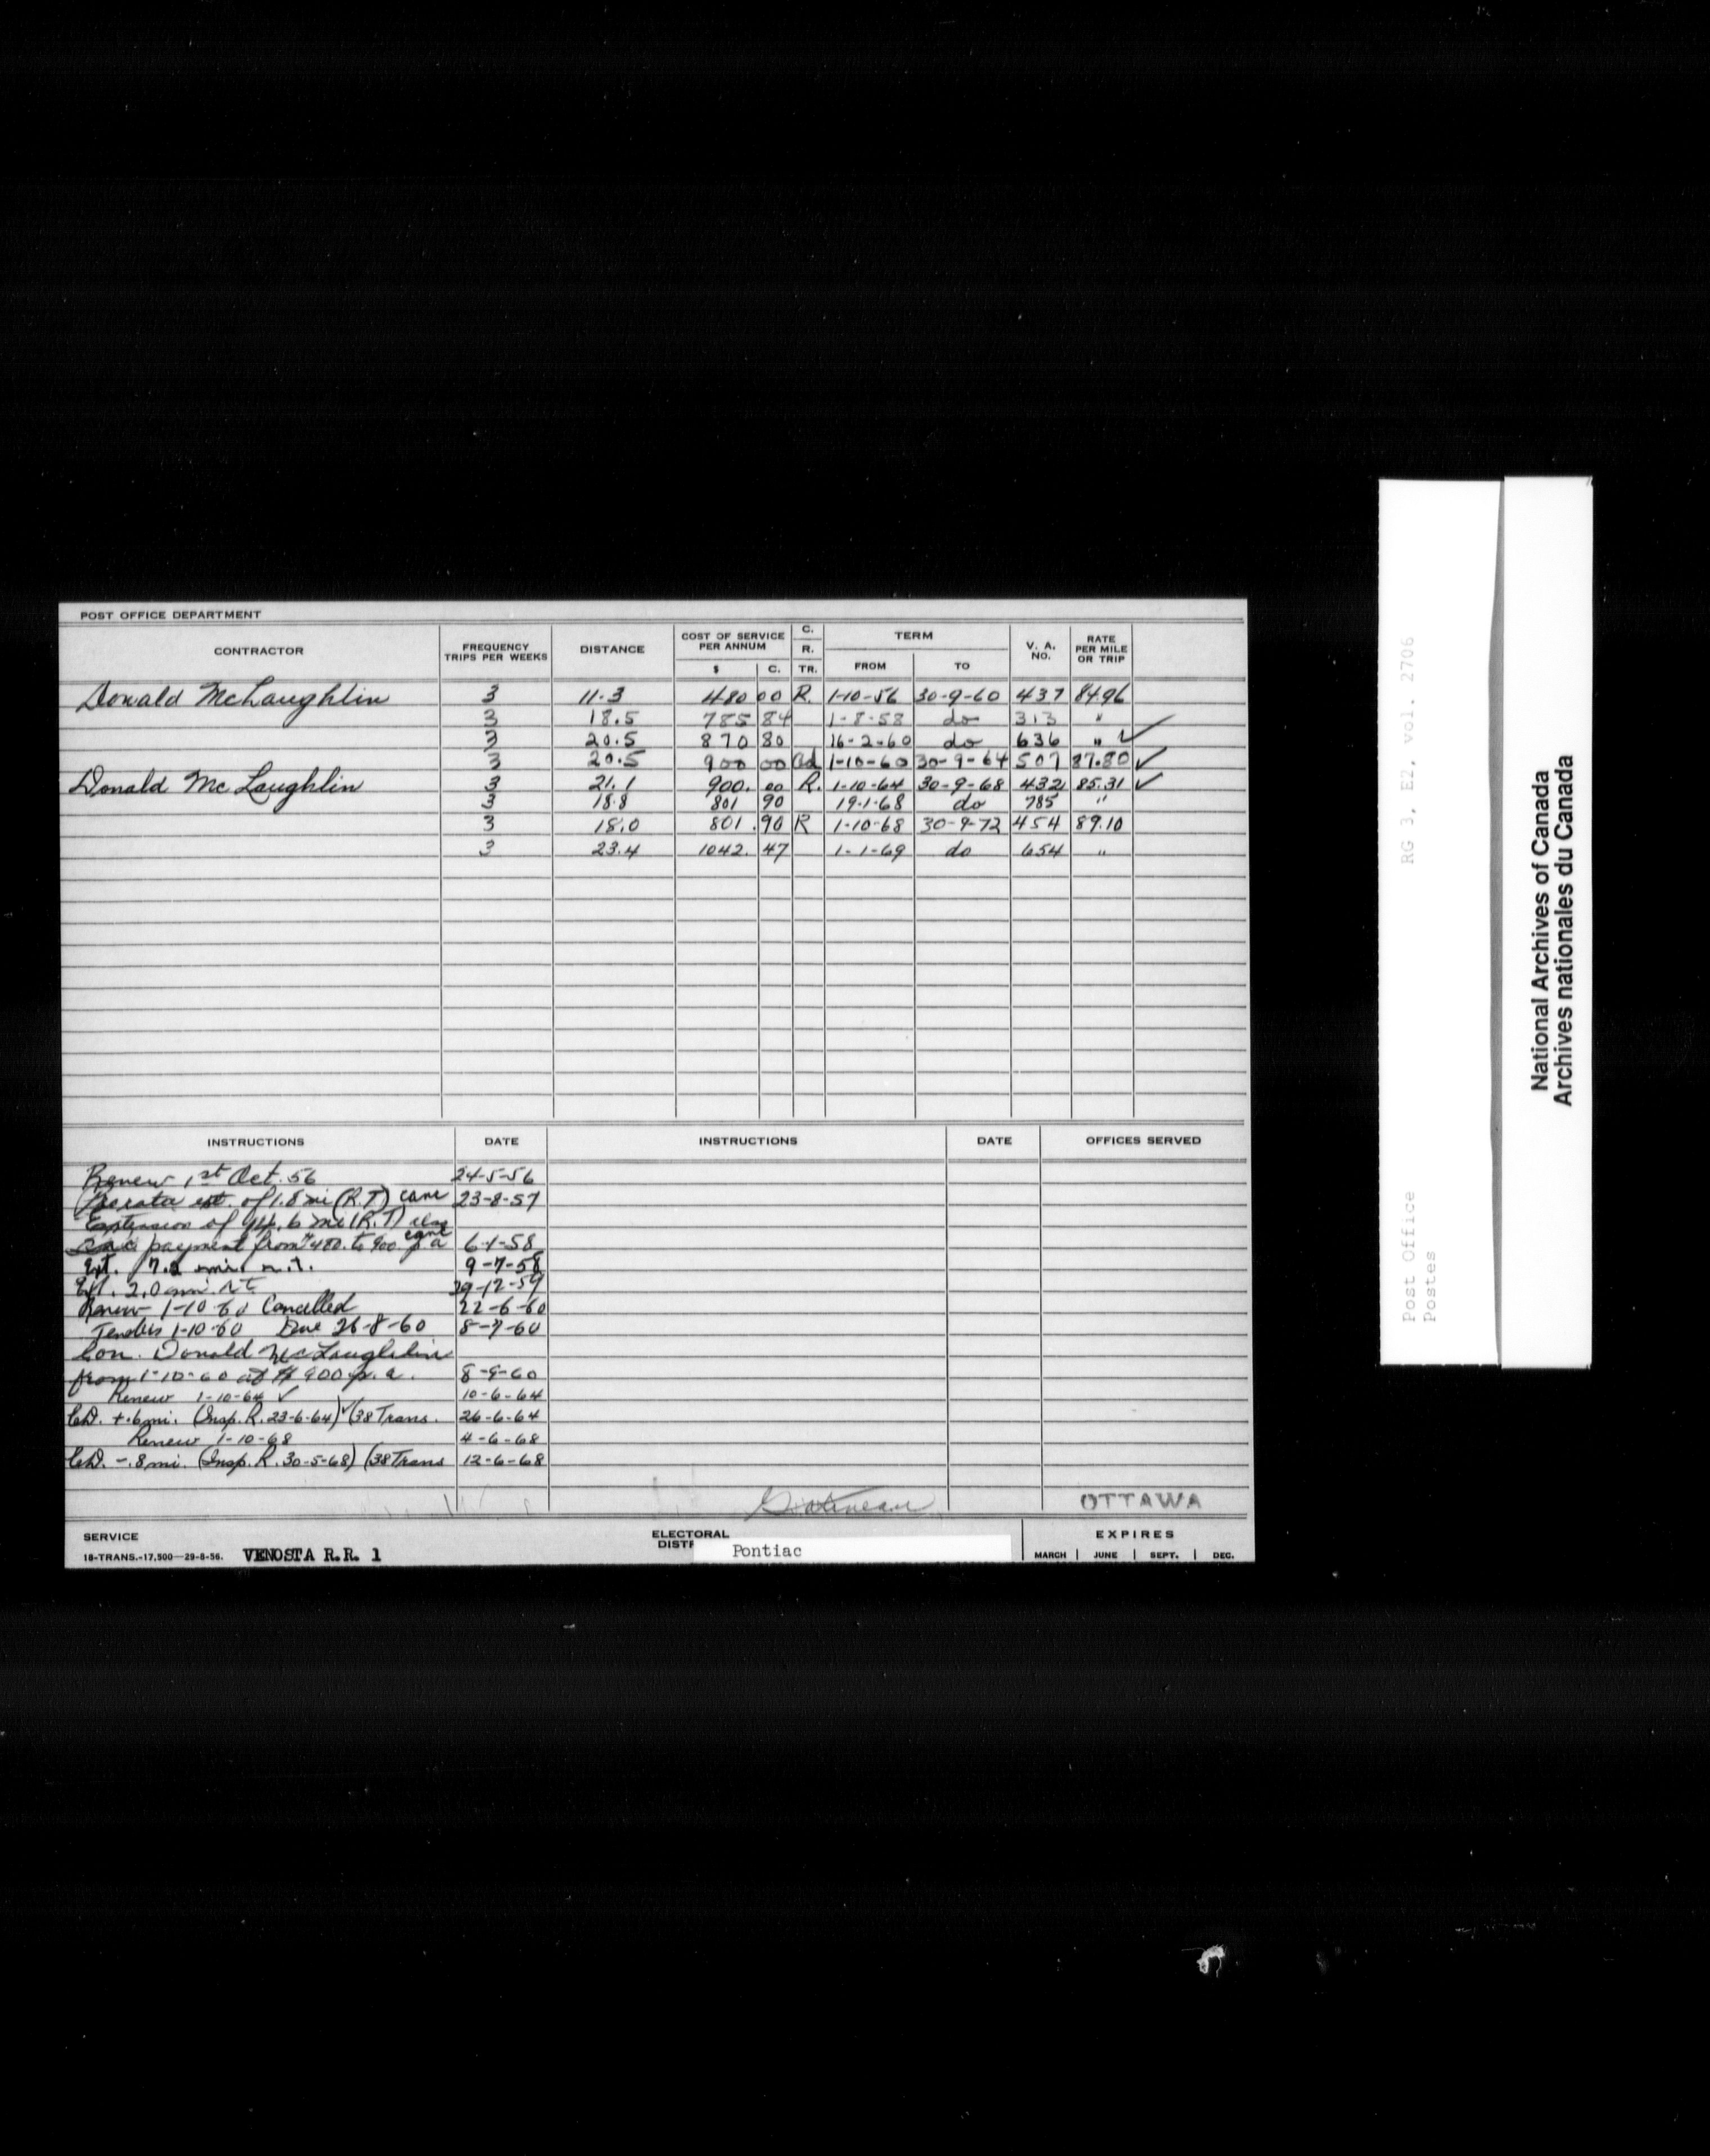 POST OFFICE DEPARTMENT
CONTRACTOR FREQUENCY TRIPS PER WEEKS DISTANCE COST OF SERVICE PER ANNUM $ C. C. R. TR. TERM FROM TO V. A. NO. RATE PER MILE OR TRIP
Donald McLaughlin 3 11.3 480 00 R. 1-10-56 30-9-60 437 84.96
3 18.5 785 84 1-8-58 do 313 "
3 20.5 870 80 16-2-60 do 636 " ✓
3 20.5 900 00 1-10-60 30-9-64 507 87.80 ✓
Donald McLaughlin 3 21.1 900. 00 R. 1-10-64 30-9-68 432 85.31 ✓
3 18.8 801 90 19-1-68 do 785 "
3 18.0 801.90 R 1-10-68 30-9-72 454 89.10
3 23.4 1042.47 1-1-69 do 654 "
INSTRUCTIONS DATE INSTRUCTIONS DATE OFFICES SERVED
Renew 1st Oct. 56 24-5-56
of 1.8 mi (R.T) canc 23-8-57
Extension of 4.6 mi (R.T)
payment from $480. to 900 p a canc 6-1-58
Ext. 7.2 mi. r.t. 9-7-58
Ext. 2.0 mi. rt 29-12-59
Renew 1-10-60 Cancelled 22-6-60
Tenders 1-10-60 Due 26-8-60 8-7-60
Con. Donald McLaughlin
from 1-10-60 at $900 p.a. 8-9-60
Renew 1-10-64 ✓ 10-6-64
Ch'd. +.6 mi. (Insp. R. 23-6-64) ✓ (38 Trans. 26-6-64
Renew 1-10-68 4-6-68
Ch'd. -.8 mi. (Insp. R. 30-5-68) (38 Trans 12-6-68
Gatineau OTTAWA
SERVICE ELECTORAL EXPIRES
18-TRANS.-17,500—29-8-56. VENOSTA R.R. 1 DISTR Pontiac MARCH JUNE SEPT. DEC.
RG 3, E2, vol. 2706
Post Office
Postes
National Archives of Canada
Archives nationales du Canada